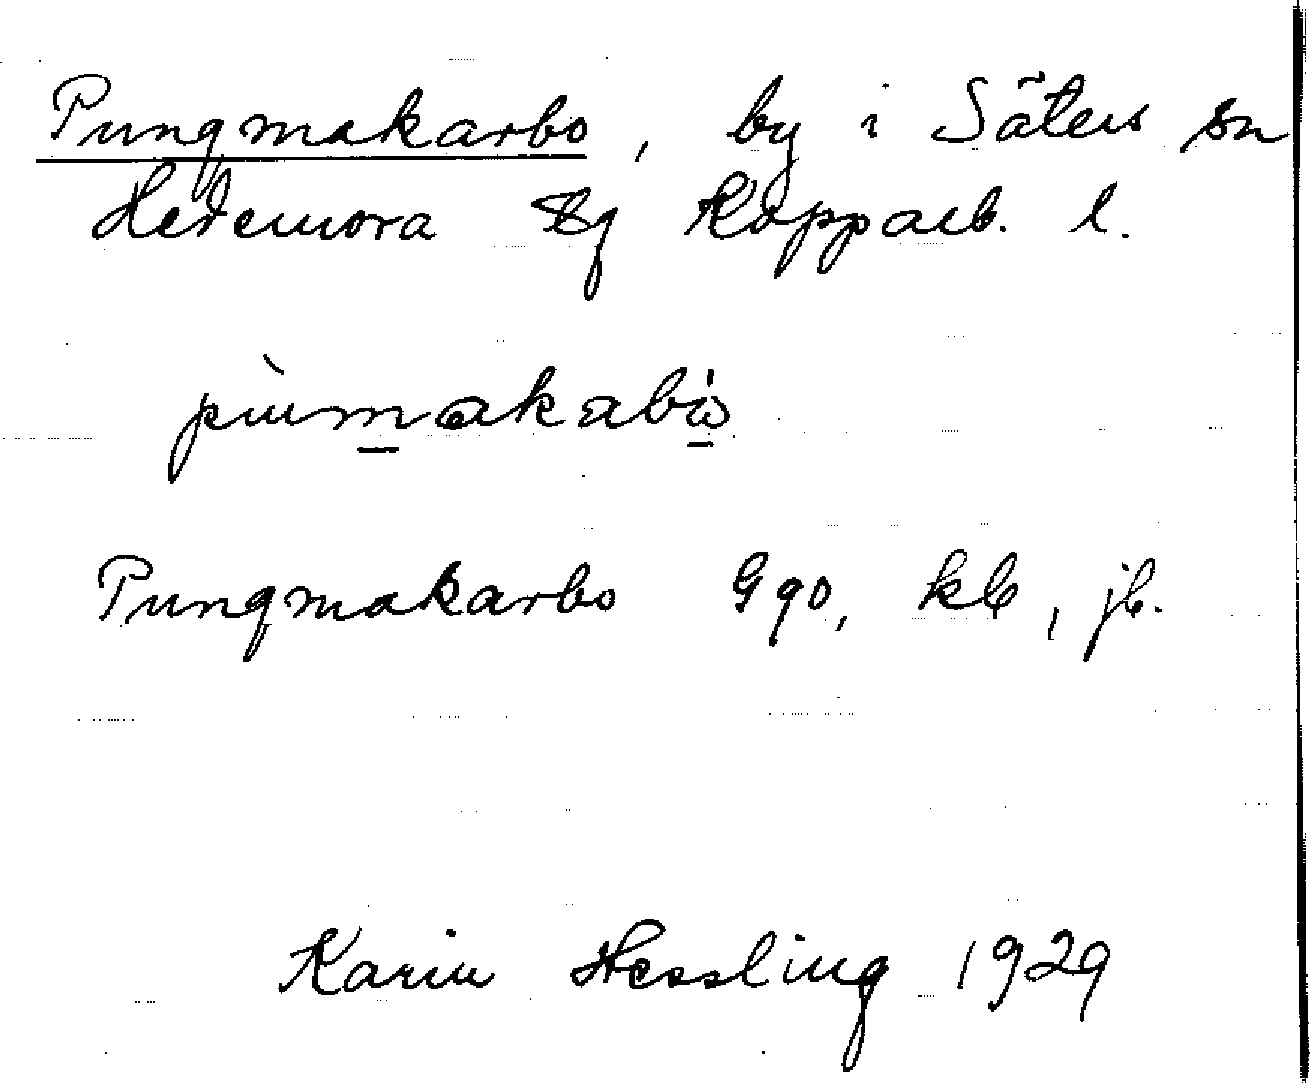 Pungmakarbo, by i Säters sn
Hedemora tg Kopparb. l.
pùmakabò
Pungmakarbo G 90, kb, jb.
Karin Hessling 1929